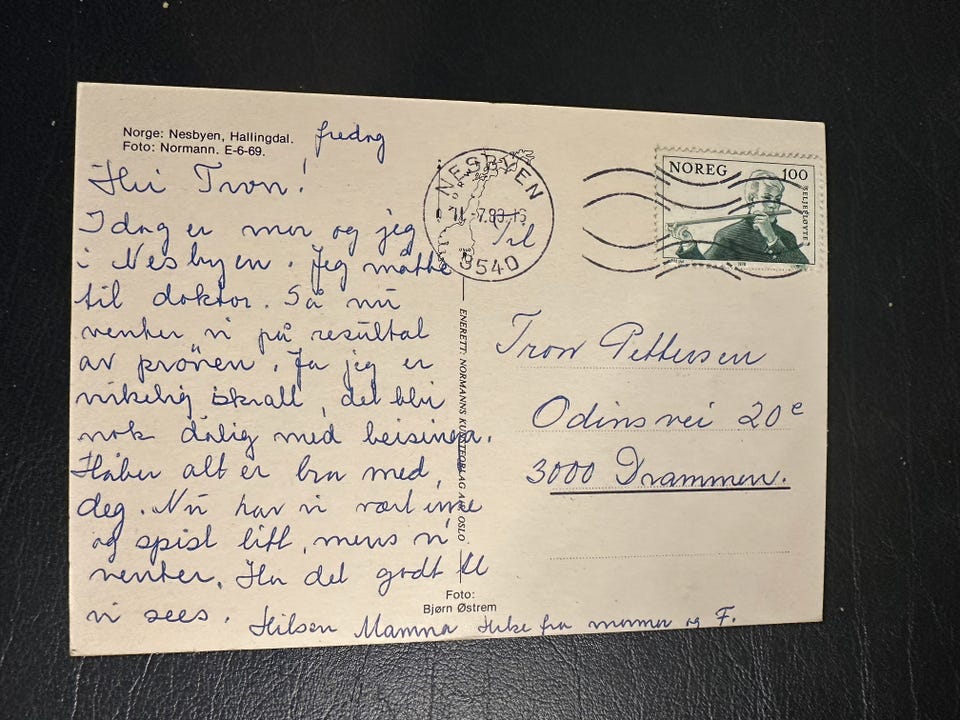 Norge: Nesbyen, Hallingdal.
Foto: Normann. E-6-69.
fredag
Hei Tron!
I dag er mor og jeg
i Nesbyen. Jeg måtte
til doktor. Så nu
venter vi på resultat
av prøven. Ja jeg er
virkelig skrall, det blir
nok dålig med
Håber alt er bra med
deg. Nu har vi vært inne
og spist litt, mens vi
venter. Ha det godt til
vi sees.
Hilsen Mamma Hilse fra mormor og F.
NESBYEN
3540
NOREG
100
SELJEFLØYTE
Til
Tron Pettersen
Odinsvei 20e
3000 Drammen.
ENERETT: NORMANNS KUNSTFORLAG A/S, OSLO
Foto:
Bjørn Østrem